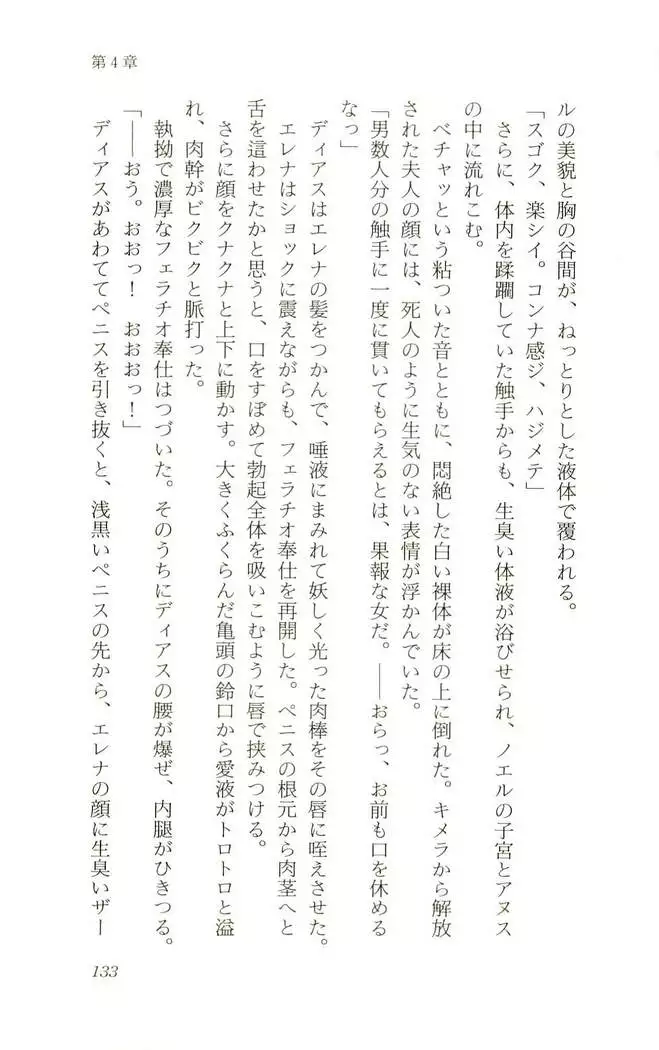 第4章
ルの美貌と胸の谷間が、ねっとりとした液体で覆われる。
「スゴク、楽シイ。コンナ感ジ、ハジメテ」
さらに、体内を蹂躙していた触手からも、生臭い体液が浴びせられ、ノエルの子宮とアヌス
の中に流れこむ。
ベチャッという粘ついた音とともに、悶絶した白い裸体が床の上に倒れた。キメラから解放
された夫人の顔には、死人のように生気のない表情が浮かんでいた。
「男数人分の触手に一度に貫いてもらえるとは、果報な女だ。――おらっ、お前も口を休める
なっ」
ディアスはエレナの髪をつかんで、唾液にまみれて妖しく光った肉棒をその唇に咥えさせた。
エレナはショックに震えながらも、フェラチオ奉仕を再開した。ペニスの根元から肉茎へと
舌を這わせたかと思うと、口をすぼめて勃起全体を吸いこむように唇で挟みつける。
さらに顔をクナクナと上下に動かす。大きくふくらんだ亀頭の鈴口から愛液がトロトロと溢
れ、肉幹がビクビクと脈打った。
執拗で濃厚なフェラチオ奉仕はつづいた。そのうちにディアスの腰が爆ぜ、内腿がひきつる。
「――おう。おおっ！　おおおっ！」
ディアスがあわててペニスを引き抜くと、浅黒いペニスの先から、エレナの顔に生臭いザー
133